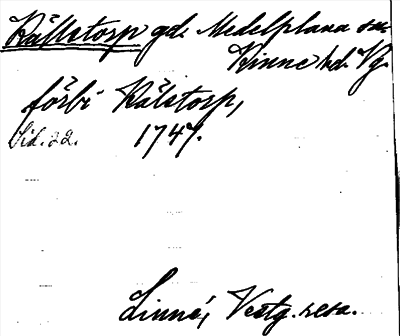 Källstorp gd. Medelplana sn.
Kinne hd. Vg.
förbi Kälstorp,
Sid. 22. 1747.
Linné, Vestg. resa.